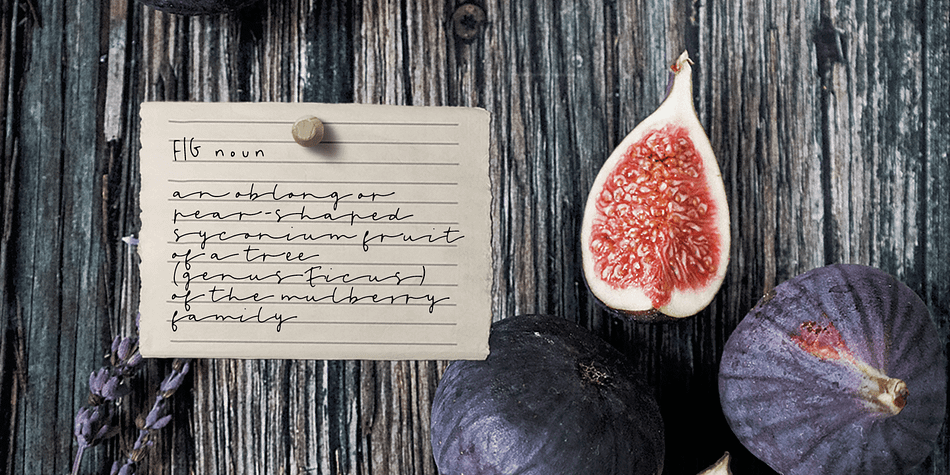 FIG noun
an oblong or
pear-shaped
syconium fruit
of a tree
(genus Ficus)
of the mulberry
family